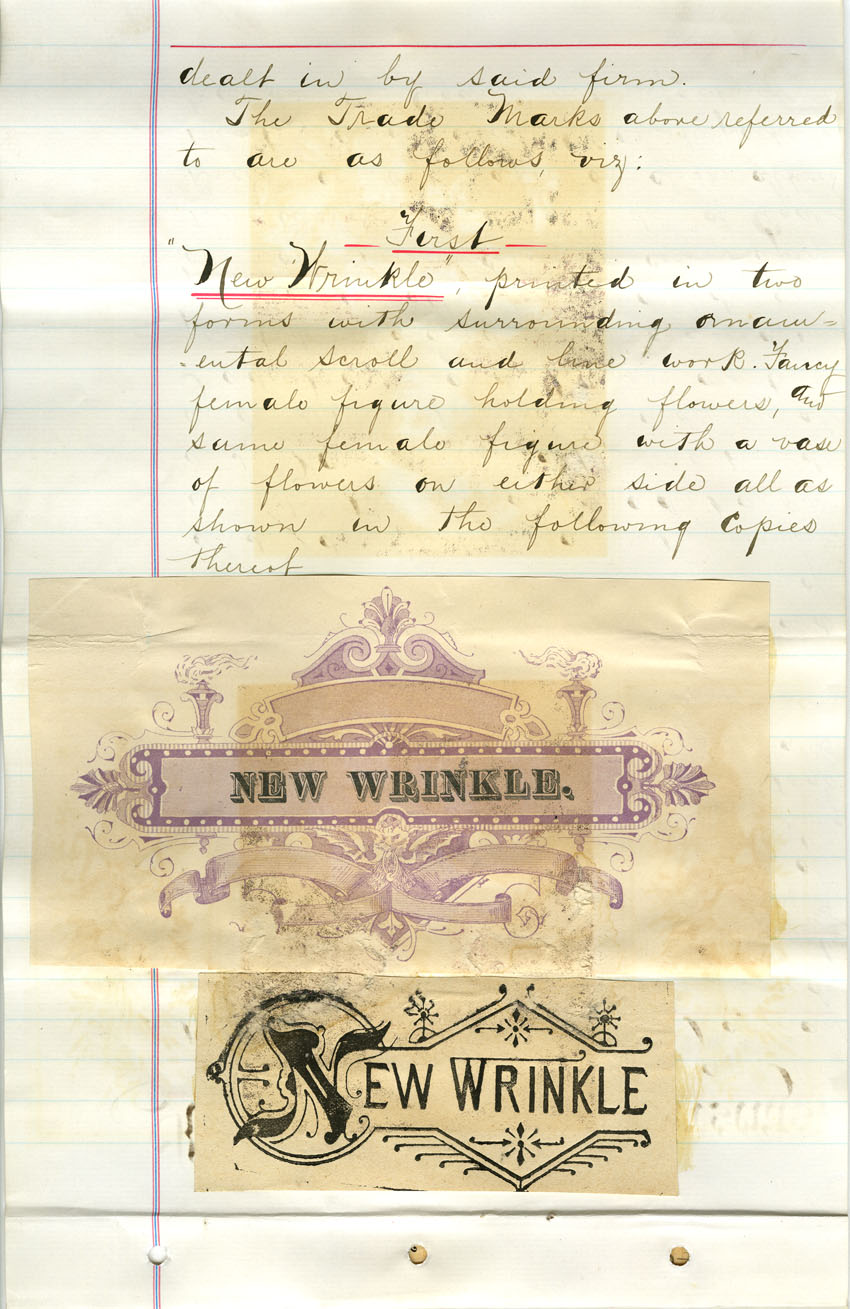 dealt in by said firm.
The Trade Marks above referred
to are as follows, viz:
First
"New Wrinkle", printed in two
forms with surrounding ornam=
-ental scroll and line work. Fancy
female figure holding flowers, and
same female figure with a vase
of flowers on either side all as
shown in the following Copies
thereof
NEW WRINKLE.
NEW WRINKLE